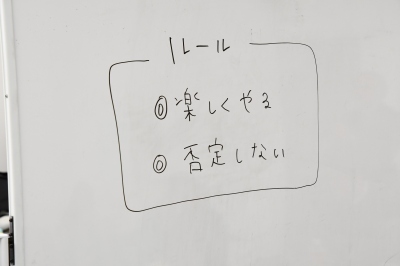 ルール
◎楽しくやる
◎否定しない